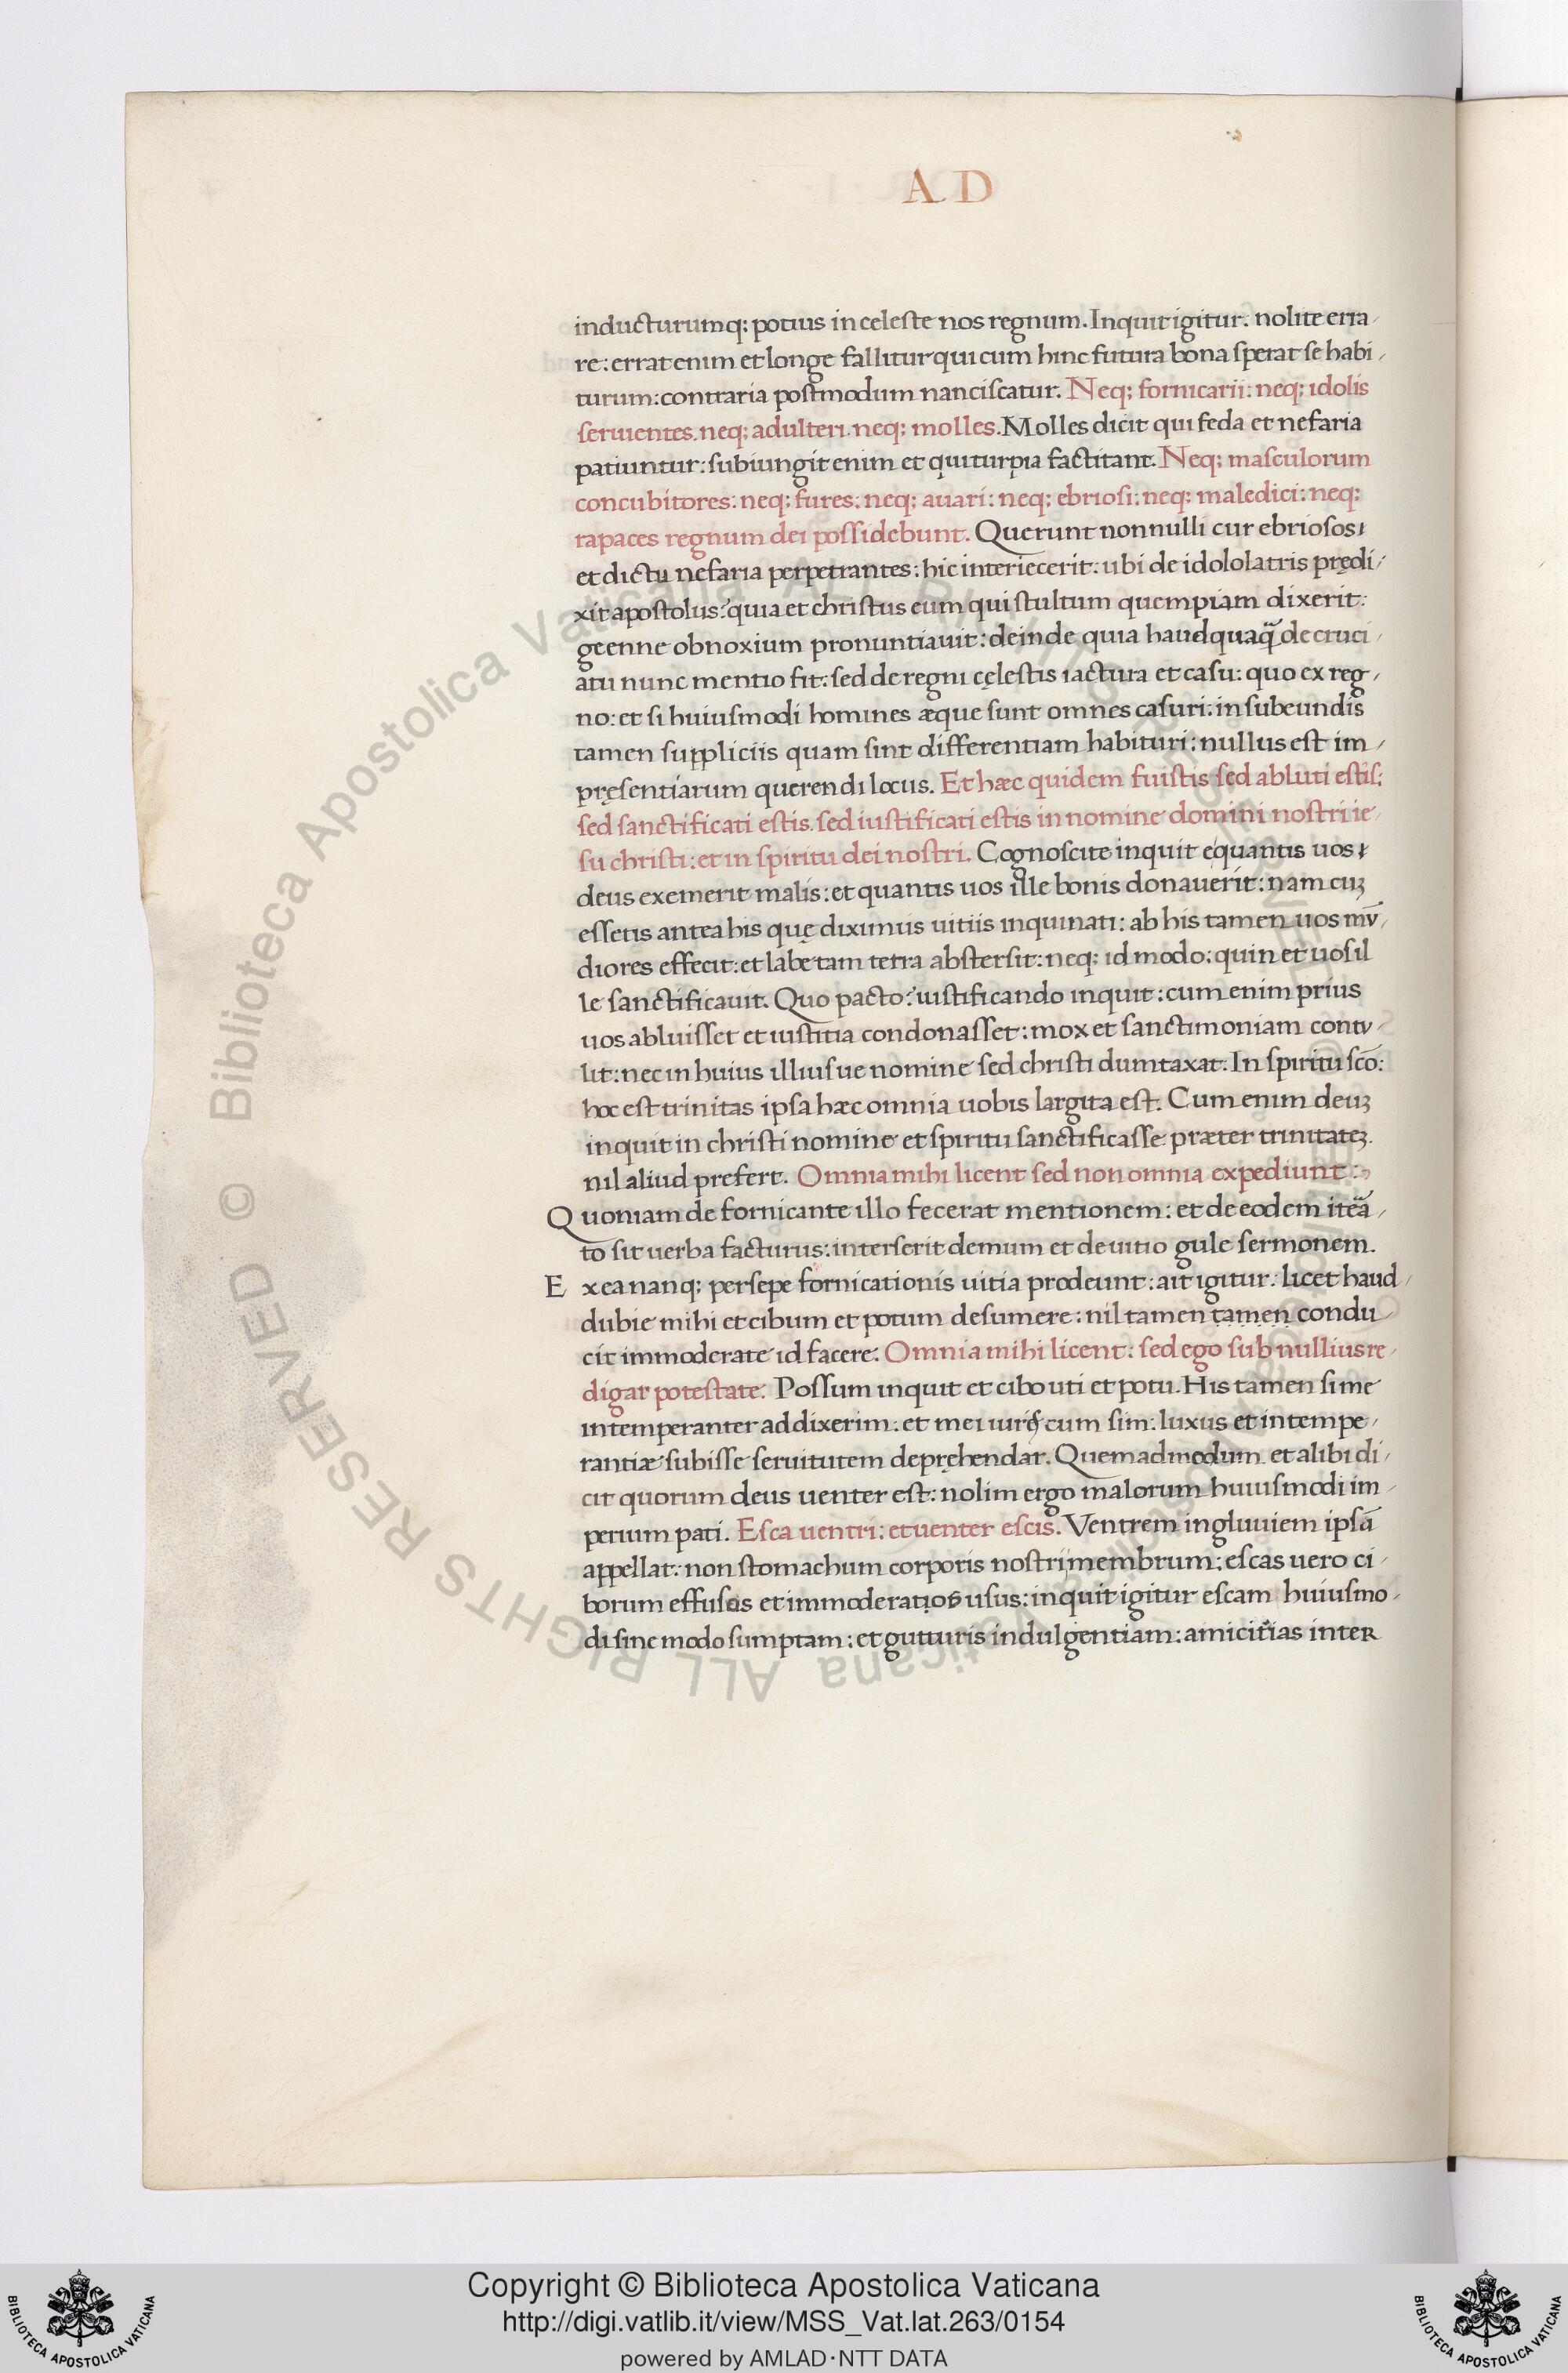 A D
inducturumq; potius in celeste nos regnum. Inquit igitur: nolite erra/
re: errat enim et longe fallitur qui cum hinc futura bona sperat se habi/
turum: contraria postmodum nanciscatur. Neq; fornicarii: neq; idolis
seruientes. neq; adulteri. neq; molles. Molles dicit qui feda et nefaria
patiuntur: subiungit enim et qui turpia factitant. Neq; masculorum
concubitores: neq; fures: neq; auari: neq; ebriosi: neq; maledici: neq;
rapaces regnum dei possidebunt. Querunt nonnulli cur ebriosos
et dictu nefaria perpetrantes: hic interiecerit: ubi de idololatris prędi/
xit apostolus? quia et christus eum qui stultum quempiam dixerit:
geenne obnoxium pronuntiauit: deinde quia haud quaq̄ de cruci/
atu nunc mentio fit: sed de regni cęlestis iactura et casu: quo ex reg/
no: et si huiusmodi homines æque sunt omnes casuri: in subeundis
tamen suppliciis quam sint differentiam habituri: nullus est im/
pręsentiarum querendi locus. Et hæc quidem fuistis sed abluti estis:
sed sanctificati estis. sed iustificati estis in nomine domini nostri ie/
su christi: et in spiritu dei nostri. Cognoscite inquit equantis uos
deus exemerit malis: et quantis uos ille bonis donauerit: nam cuꝫ
essetis antea his quę diximus uitiis inquinati: ab his tamen uos mv̄/
diores effecit: et labe tam tetra abstersit: neq; id modo: quin et uos il
le sanctificauit. Quo pacto? iustificando inquit: cum enim prius
uos abluisset et iustitia condonasset: mox et sanctimoniam contv/
lit: nec in huius illiusue nomine sed christi dumtaxat. In spiritu sc̄o:
hoc est trinitas ipsa hæc omnia uobis largita est. Cum enim deuꝫ
inquit in christi nomine et spiritu sanctificasse præter trinitateꝫ
nil aliud prefert. Omnia mihi licent sed non omnia expediunt:
Quoniam de fornicante illo fecerat mentionem: et de eodem iteā/
to sit uerba facturus: interserit demum et de uitio gule sermonem.
Ex ea nanq; persepe fornicationis uitia prodeunt: ait igitur: licet haud/
dubie mihi et cibum et potum desumere: nil tamen tamen condu/
cit immoderate id facere. Omnia mihi licent: sed ego sub nullius re/
digar potestate. Possum inquit et cibo uti et potu. His tamen si me
intemperanter addixerim: et mei iuris cum sim: luxus et intempe/
rantiæ subisse seruitutem depręhendar. Quemadmodum et alibi di/
cit quorum deus uenter est: nolim ergo malorum huiusmodi im/
perium pati. Esca uentri: et uenter escis. Ventrem ingluuiem ipsā
appellat: non stomachum corporis nostri membrum: escas uero ci/
borum effusos et immoderatios usus: inquit igitur escam huiusmo/
di sine modo sumptam: et gutturis indulgentiam: amicitias inter
© Biblioteca Apostolica Vaticana ALL RIGHTS RESERVED
Copyright © Biblioteca Apostolica Vaticana
http://digi.vatlib.it/view/MSS_Vat.lat.263/0154
powered by AMLAD·NTT DATA
BIBLIOTECA APOSTOLICA VATICANA
BIBLIOTECA APOSTOLICA VATICANA